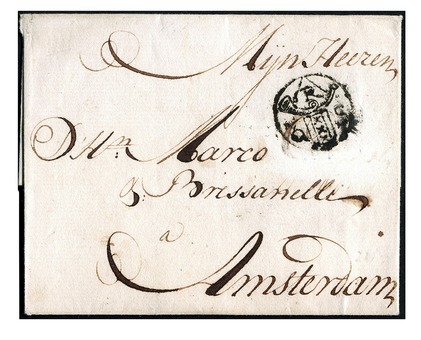 Mÿn Heeren
D'Hrn Marco
& Brissanelle
a
Amsterdam